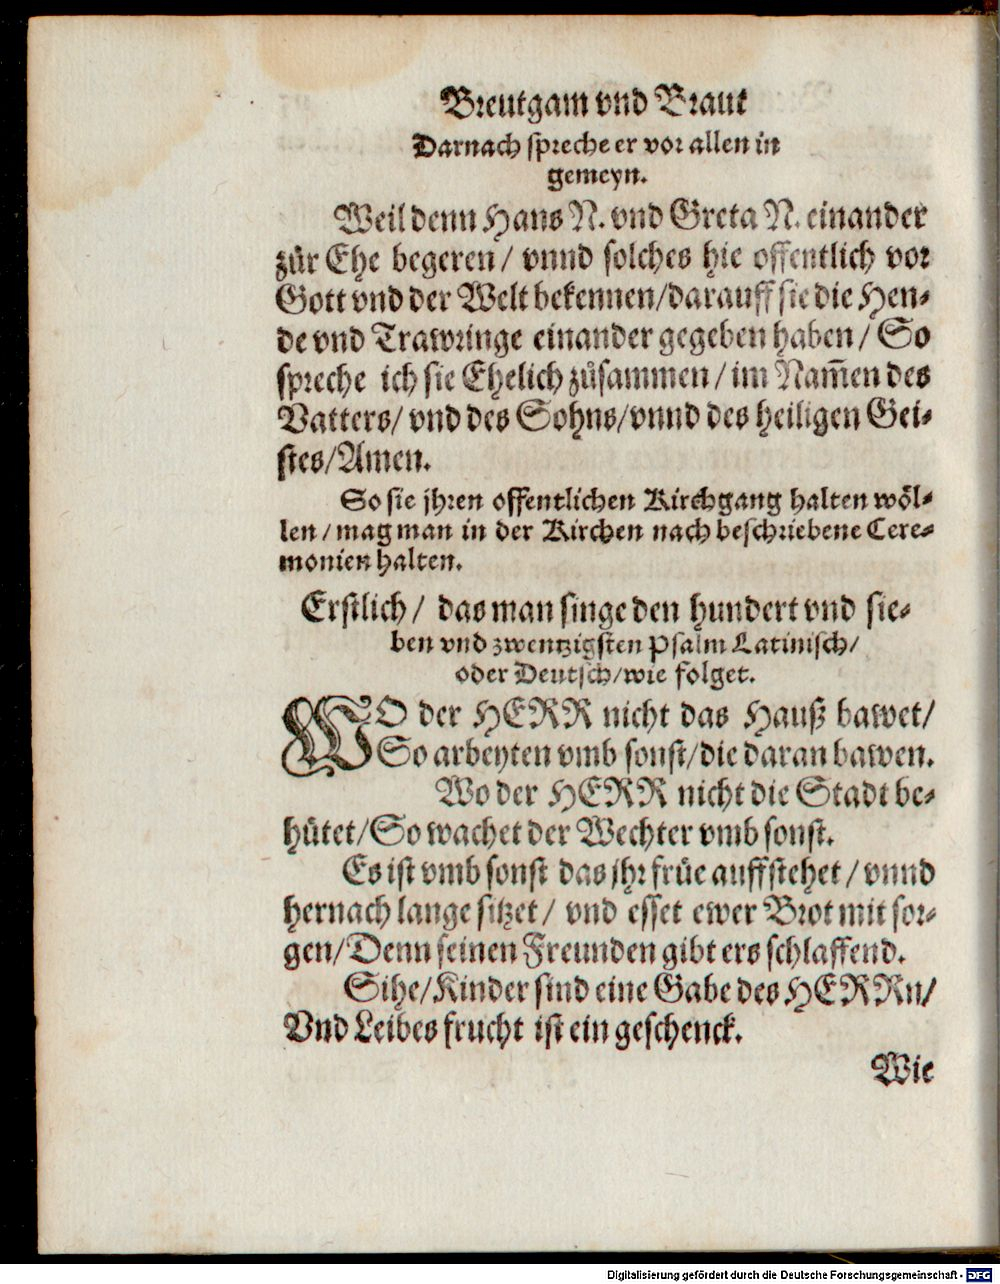 Breutgam vnd Braut
Darnach spreche er vor allen in
gemeyn.
Weil denn Hans N. vnd Greta N. einander
zůr Ehe begeren / vnnd solches hie offentlich vor
Gott vnd der Welt bekennen/darauff sie die Hen-
de vnd Trawringe einander gegeben haben / So
spreche ich sie Ehelich zůsammen / im Nam̄en des
Vatters/ vnd des Sohns/vnnd des heiligen Gei-
stes/Amen.
So sie jhren offentlichen Kirchgang halten wöl-
len / mag man in der Kirchen nach beschriebene Cere-
monien halten.
Erstlich / das man singe den hundert vnd sie-
ben vnd zwentzigsten Psalm Latinisch/
oder Deutsch/wie folget.
WO der HERR nicht das Hauß bawet/
So arbeyten vmb sonst/die daran bawen.
Wo der HERR nicht die Stadt be-
hütet/So wachet der Wechter vmb sonst.
Es ist vmb sonst das jhr früe auffstehet / vnnd
hernach lange sitzet / vnd esset ewer Brot mit sor-
gen/Denn seinen Freunden gibt ers schlaffend.
Sihe/Kinder sind eine Gabe des HERRn/
Vnd Leibes frucht ist ein geschenck.
Wie
Digitalisierung gefördert durch die Deutsche Forschungsgemeinschaft - DFG